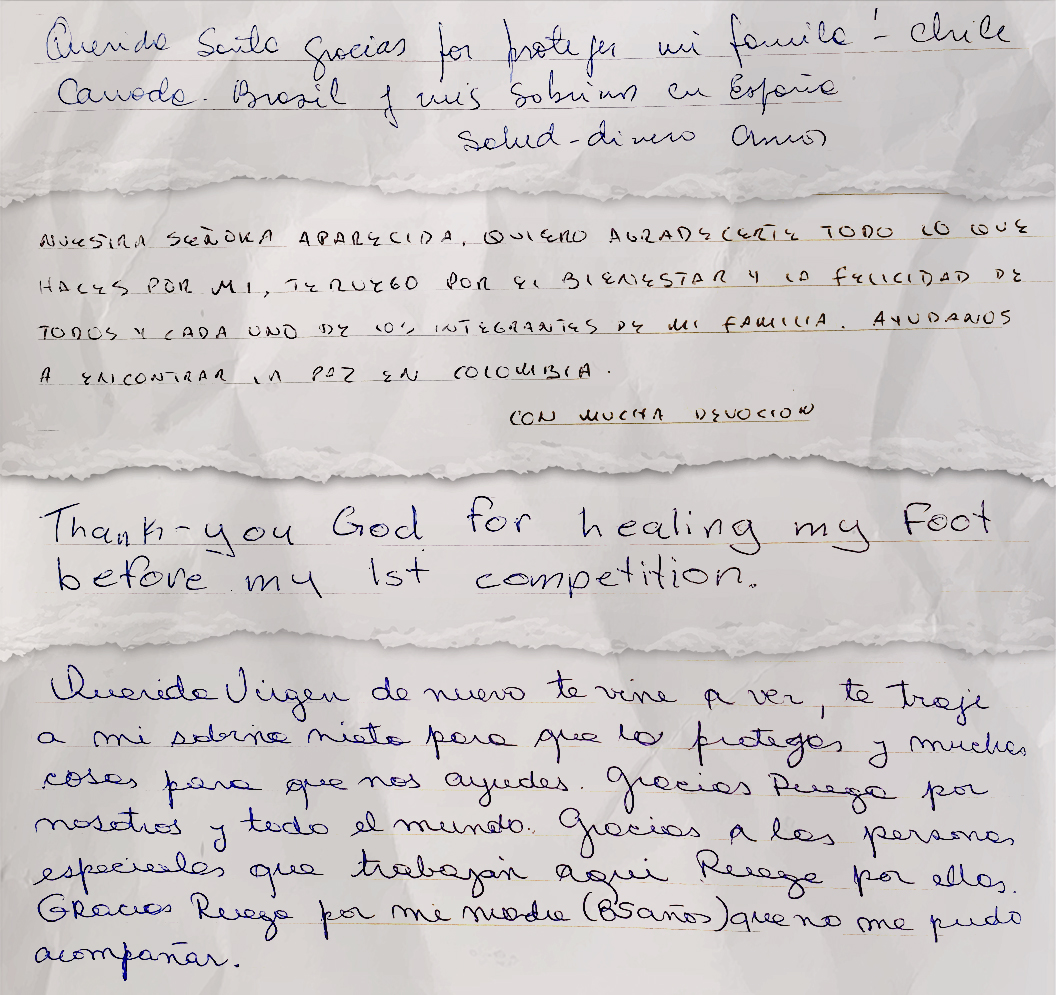 Querida Santa gracias por proteger mi familia - Chile
Canada. Brasil y mis sobrinos en España
Salud - dinero Amor
NUESTRA SEÑORA APARECIDA, QUIERO AGRADECERTE TODO LO QUE
HACES POR MI, TE RUEGO POR EL BIENESTAR Y LA FELICIDAD DE
TODOS Y CADA UNO DE LOS INTEGRANTES DE MI FAMILIA. AYUDANOS
A ENCONTRAR LA PAZ EN COLOMBIA.
CON MUCHA DEVOCION
Thank-you God for healing my Foot
before my 1st competition.
Querida Virgen de nuevo te vine a ver, te traje
a mi sobrina nieta para que la protegas y muchas
cosas para que nos ayudes. Gracias Ruega por
nosotros y todo el mundo. Gracias a las personas
especiales que trabajan aqui Ruega por ellos.
GRacias Ruega por mi madre (85 años) que no me pudo
acompañar.